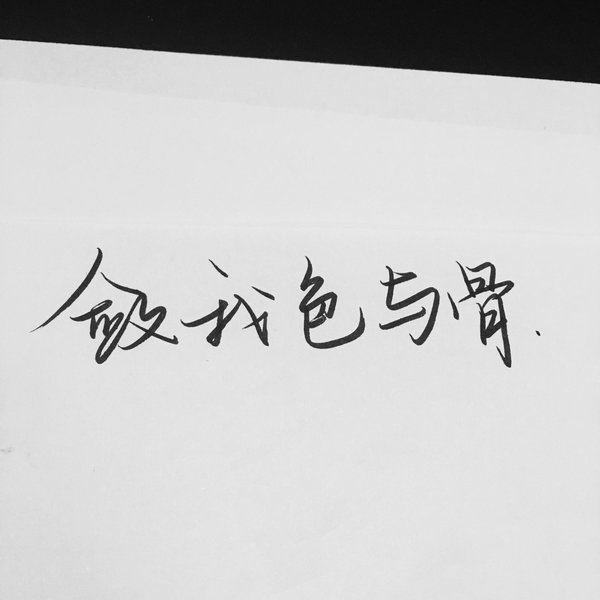 敛我色与骨.